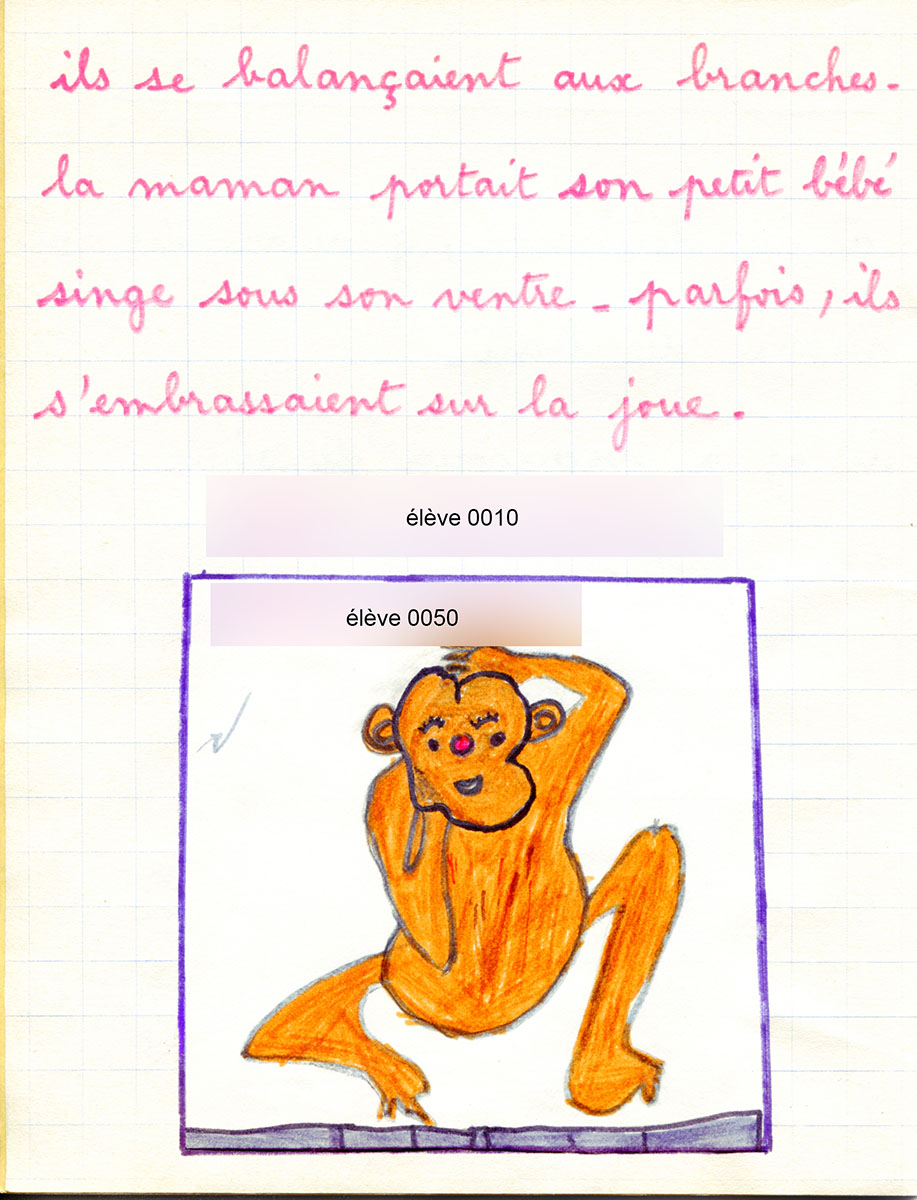 ils se balançaient aux branches.
la maman portait son petit bébé
singe sous son ventre _ parfois, ils
s'embrassaient sur la joue.
élève 0010
élève 0050